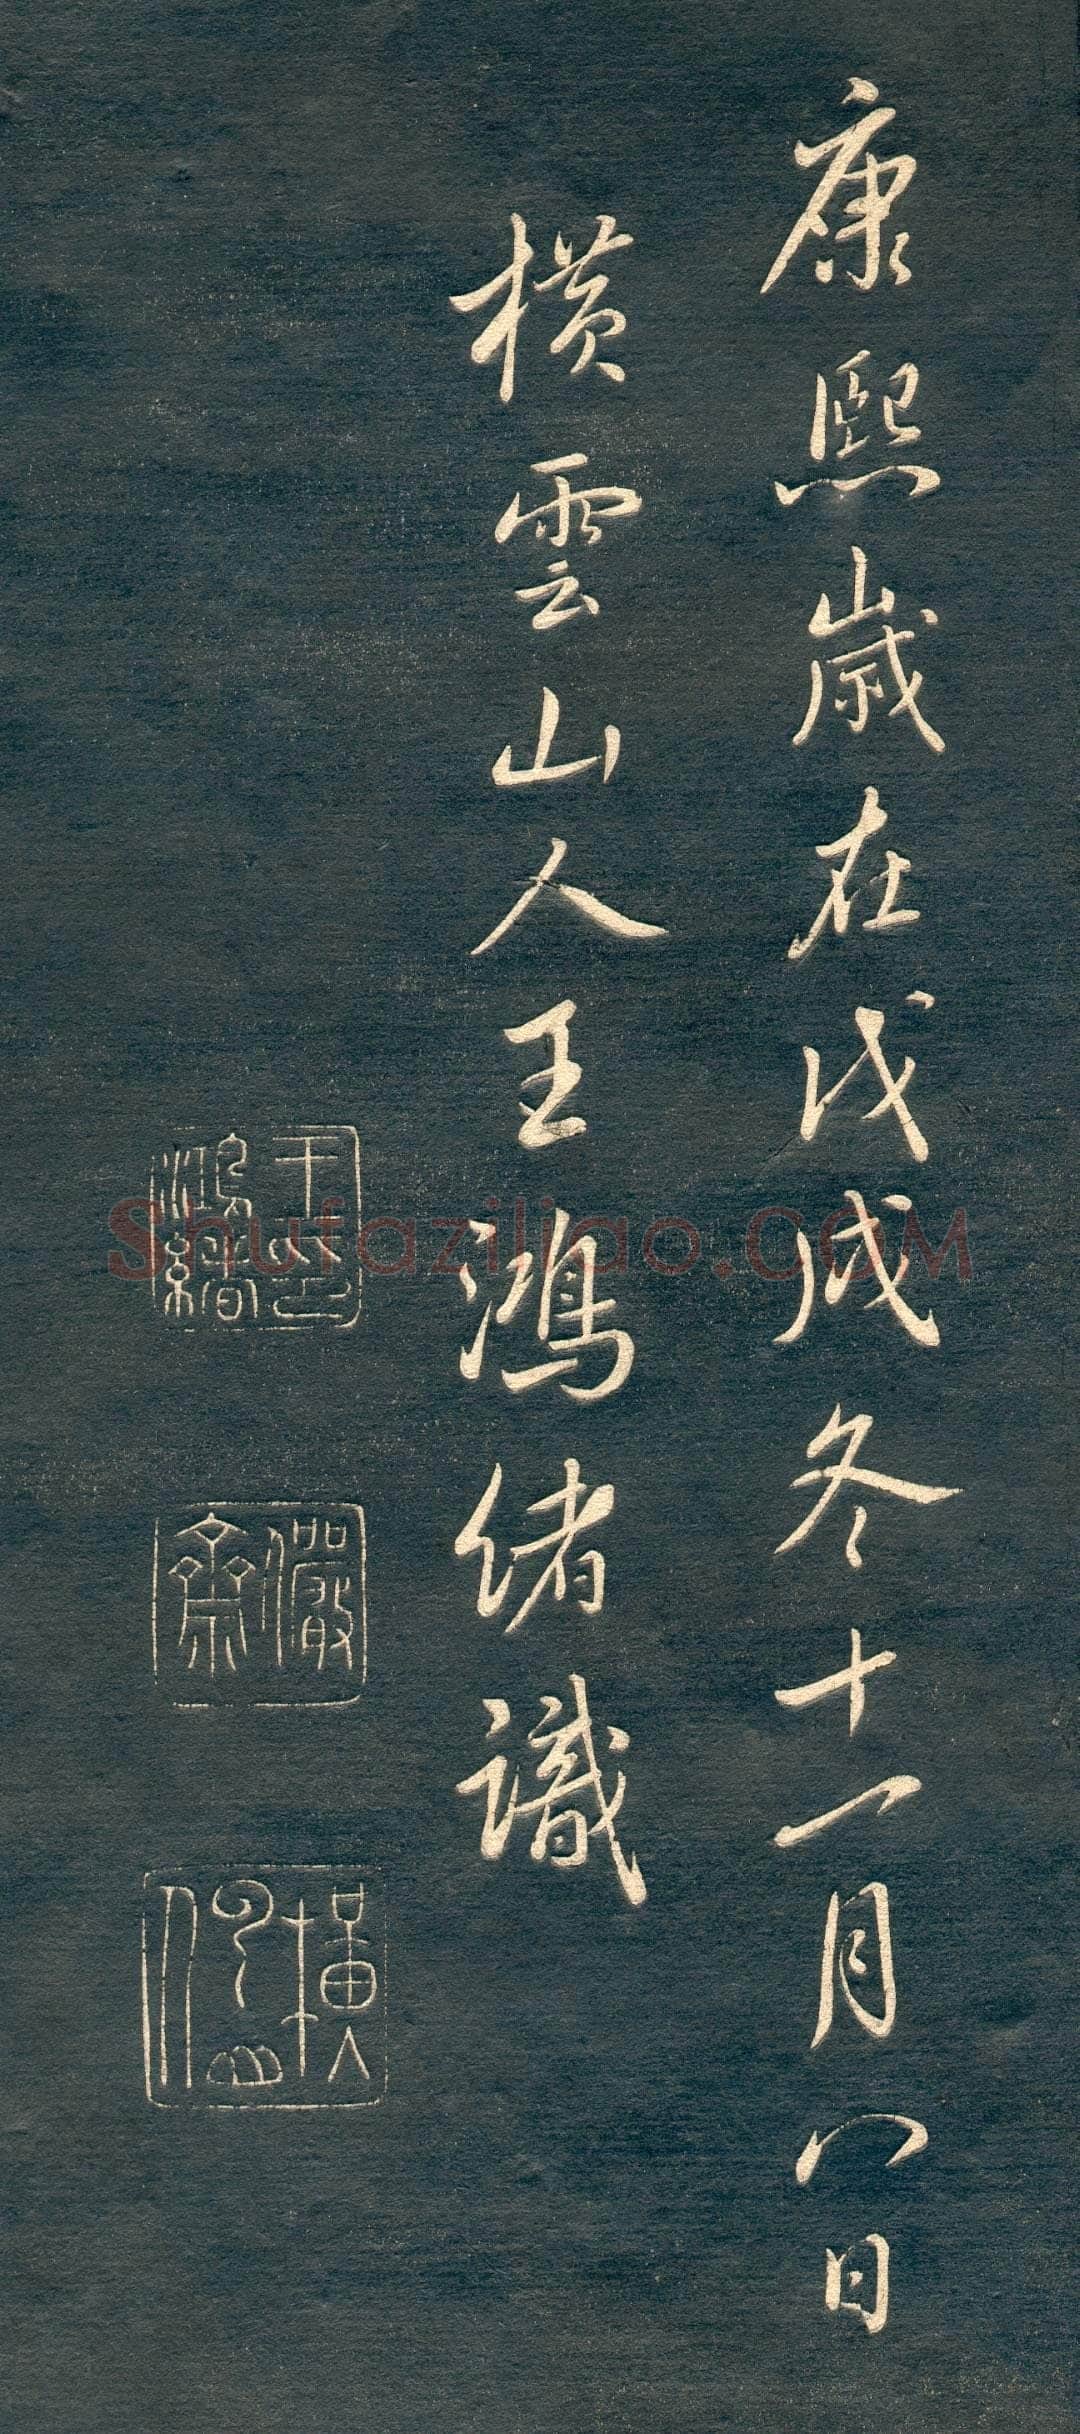 康熙歲在戊戌冬十一月八日
橫雲山人王鴻緒識
王印鴻緒
儼齋
橫雲山人
Shufaziliao.COM